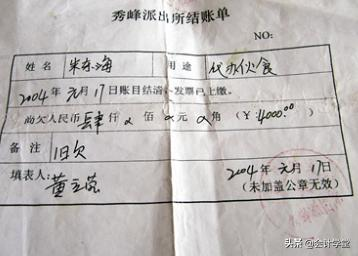 秀峰派出所结账单
NO:
姓名 朱存海 用途 代办伙食
2004年元月17日账目结清,发票已上缴。
尚欠人民币肆仟 佰 元 角 (¥:4000.00)
备注 旧欠
填表人: 黄 2004年元月17日
(未加盖公章无效)
头条 @会计学堂